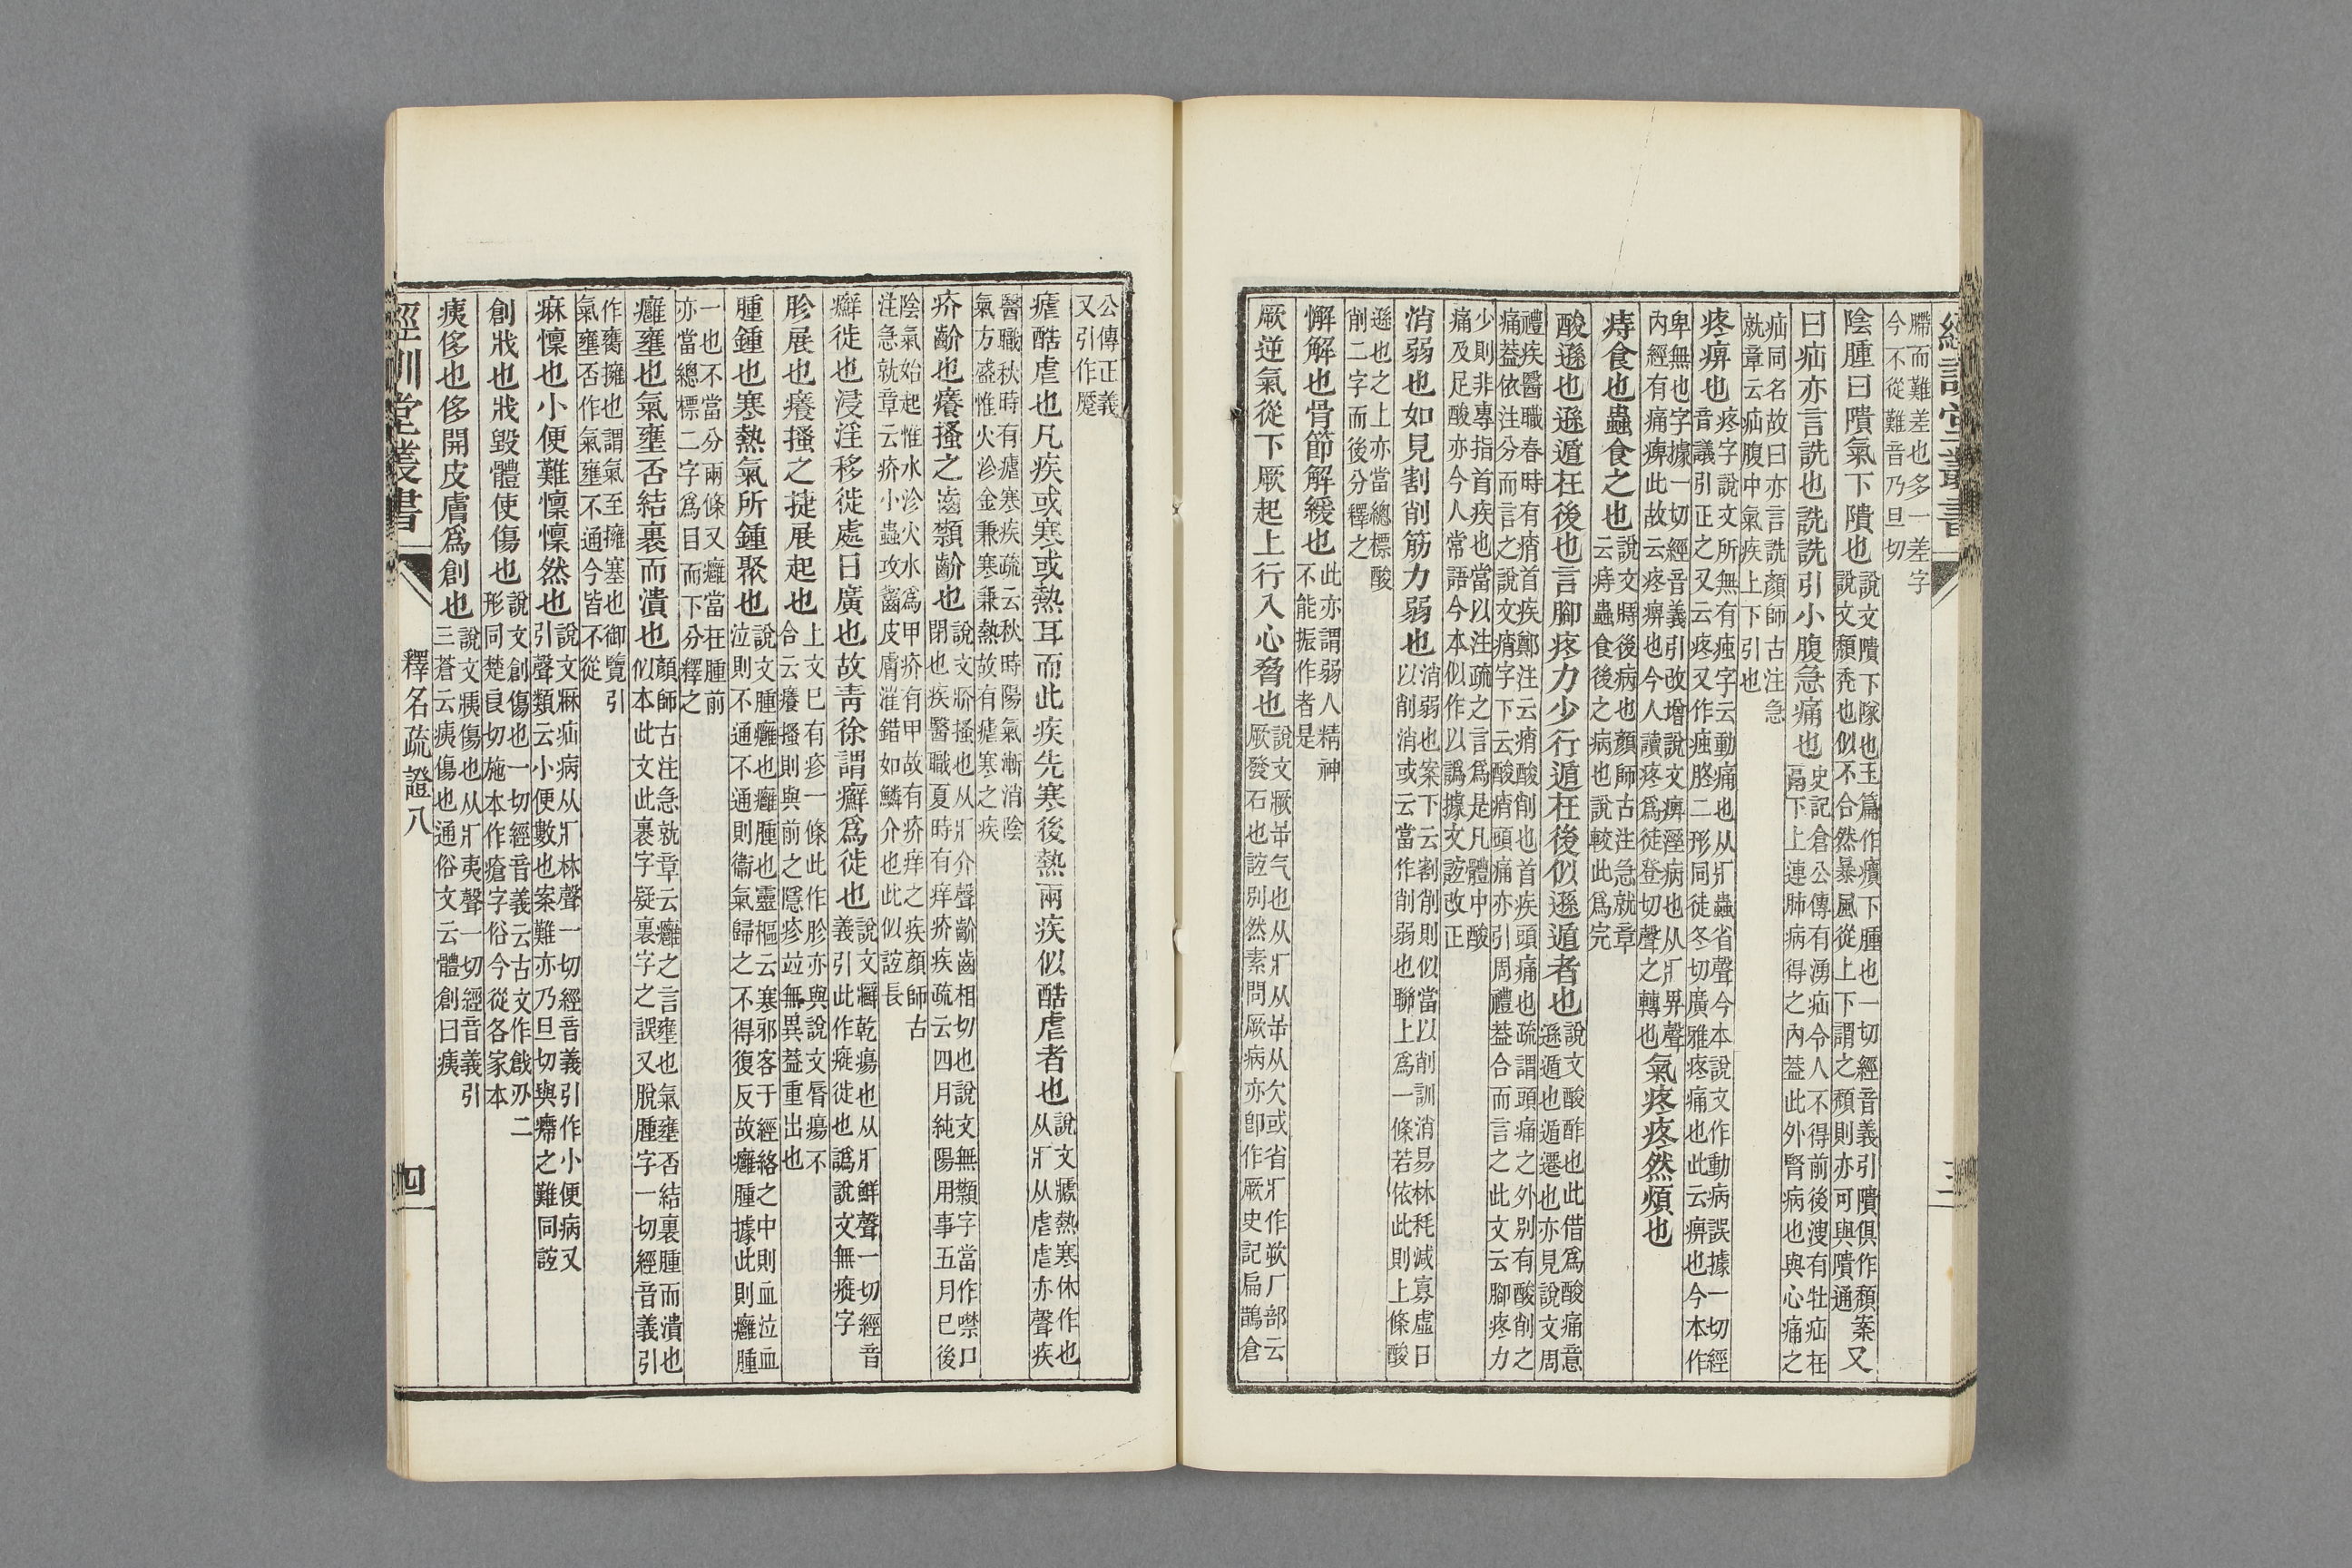 經訓堂叢書
滯而難差也多一差字
今不從難音乃旦切
陰腫曰隤氣下隤也說文隤下隊也玉篇作㿉下腫也一切經音義引隤俱作頹案又
說文頹秃也似不合然暴風從上下謂之頹則亦可與隤通
曰疝亦言詵也詵詵引小腹急痛也史記倉公傳有湧疝令人不得前後溲有牡疝在
鬲下上連肺病得之內蓋此外腎病也與心痛之
疝同名故曰亦言詵顏師古注急
就章云疝腹中氣疾上下引也
疼痹也疼字說文所無有痋字云動痛也从疒蟲省聲今本說文作動病誤據一切經
音議引正之又云疼又作痋胳二形同徒冬切廣雅疼痛也此云痹也今本作
卑無也字據一切經音義引改增說文痹溼病也从疒畀聲
內經有痛痹此故云疼痹也今人讀疼爲徒登切聲之轉也氣疼疼然煩也
痔食也蟲食之也說文痔後病也顏師古注急就章
云痔蟲食後之病也說較此爲完
酸遜也遜遁在後也言腳疼力少行遁在後似遜遁者也說文酸酢也此借爲酸痛意
遜遁也遁遷也亦見說文周
禮疾醫職春時有痟首疾鄭注云痟酸削也首疾頭痛也疏謂頭痛之外别有酸削之
痛蓋依注分而言之說文痟字下云酸痟頭痛亦引周禮蓋合而言之此文云腳疼力
少則非專指首疾也當以注疏之言爲是凡體中酸
痛及足酸亦今人常語今本似作以譌據文誼改正
消弱也如見割削筋力弱也消弱也案下云割削則似當以削訓消易林秏減寡虛日
以削消或云當作削弱也聯上爲一條若依此則上條酸
遜也之上亦當總標酸
削二字而後分釋之
懈解也骨節解緩也此亦謂弱人精神
不能振作者是
厥逆氣從下厥起上行入心脅也說文瘚屰气也从疒从屰从欠或省疒作欮厂部云
厥發石也誼别然素問厥病亦卽作厥史記扁鵲倉
公傳正義
又引作蹷
瘧酷虐也凡疾或寒或熱耳而此疾先寒後熱兩疾似酷虐者也說文瘧熱寒休作也
从疒从虐虐亦聲疾
醫職秋時有瘧寒疾疏云秋時陽氣漸消陰
氣方盛惟火沴金兼寒兼熱故有瘧寒之疾
疥齘也癢搔之齒類齘也說文疥搔也从疒介聲齘齒相切也說文無類字當作噤口
閉也疾醫職夏時有痒疥疾疏云四月純陽用事五月巳後
陰氣始起惟水沴火水爲甲疥有甲故有疥痒之疾顏師古
注急就章云疥小蟲攻齧皮膚漼錯如鱗介也此似誼長
癬徙也浸淫移徙處日廣也故靑徐謂癬爲徙也說文癬乾瘍也从疒鮮聲一切經音
義引此作㾭徙也譌說文無㾭字
胗展也癢搔之捷展起也上文已有疹一條此作胗亦與說文脣瘍不
合云癢搔則與前之隱疹竝無異蓋重出也
腫鍾也寒熱氣所鍾聚也說文腫癰也癰腫也靈樞云寒邪客于經絡之中則血泣血
泣則不通不通則衞氣歸之不得復反故癰腫據此則癰腫
一也不當分兩條又癰當在腫前
亦當總標二字爲目而下分釋之
癰壅也氣壅否結裹而潰也顏師古注急就章云癰之言壅也氣壅否結裹腫而潰也
似本此文此裹字疑裏字之誤又脫腫字一切經音義引
作癕擁也謂氣至擁塞也御覽引
氣壅否作氣壅不通今皆不從
痳懍也小便難懍懍然也說文痳疝病从疒林聲一切經音義引作小便病又
引聲類云小便數也案難亦乃旦切與癉之難同誼
創戕也戕毀體使傷也說文創傷也一切經音義云古文作戧刅二
形同楚良切施本作瘡字俗今從各家本
痍侈也侈開皮膚爲創也說文痍傷也从疒夷聲一切經音義引
三蒼云痍傷也通俗文云體創曰痍
經訓堂叢書
釋名疏證八
四